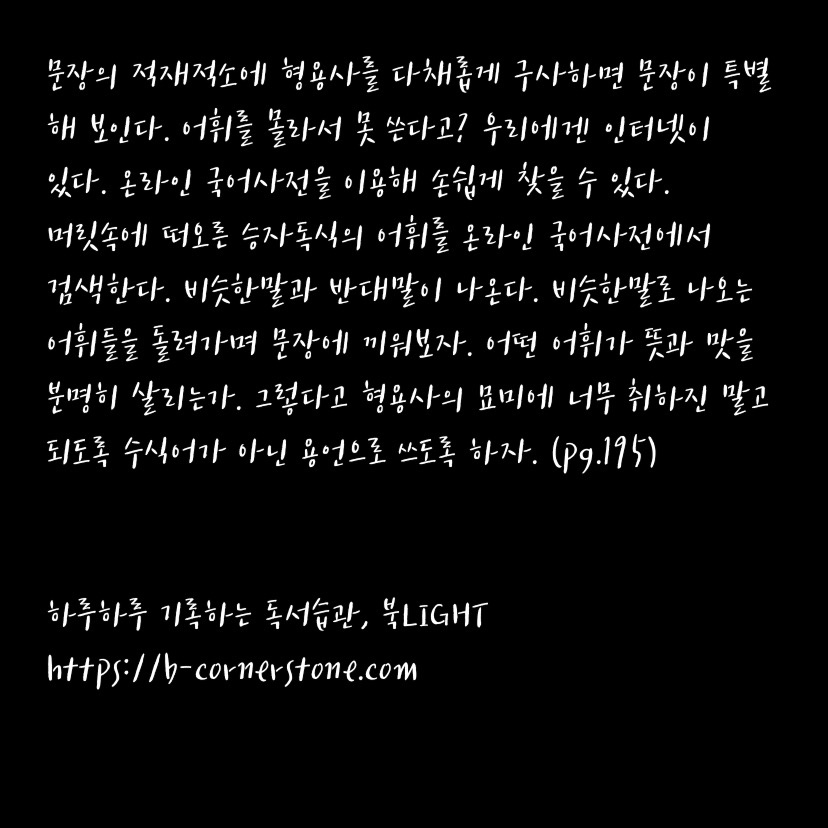 문장의 적재적소에 형용사를 다채롭게 구사하면 문장이 특별
해 보인다. 어휘를 몰라서 못 쓴다고? 우리에겐 인터넷이
있다. 온라인 국어사전을 이용해 손쉽게 찾을 수 있다.
머릿속에 떠오른 승자독식의 어휘를 온라인 국어사전에서
검색한다. 비슷한말과 반대말이 나온다. 비슷한말로 나오는
어휘들을 돌려가며 문장에 끼워보자. 어떤 어휘가 뜻과 맛을
분명히 살리는가. 그렇다고 형용사의 묘미에 너무 취하진 말고
되도록 수식어가 아닌 용언으로 쓰도록 하자. (pg.195)
하루하루 기록하는 독서습관, 북LIGHT
https://b-cornerstone.com